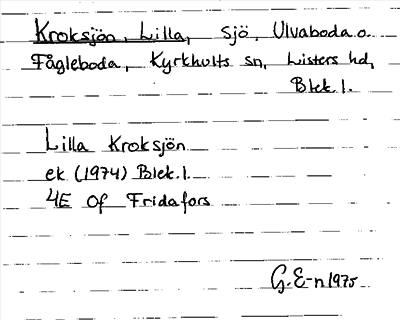 Kroksjön, Lilla, sjö, Ulvaboda o.
Fågleboda, Kyrkhults sn, Listers hd,
Blek. l.
Lilla Kroksjön
ek (1974) Blek. l.
4E Of Fridafors
G. E-n 1975